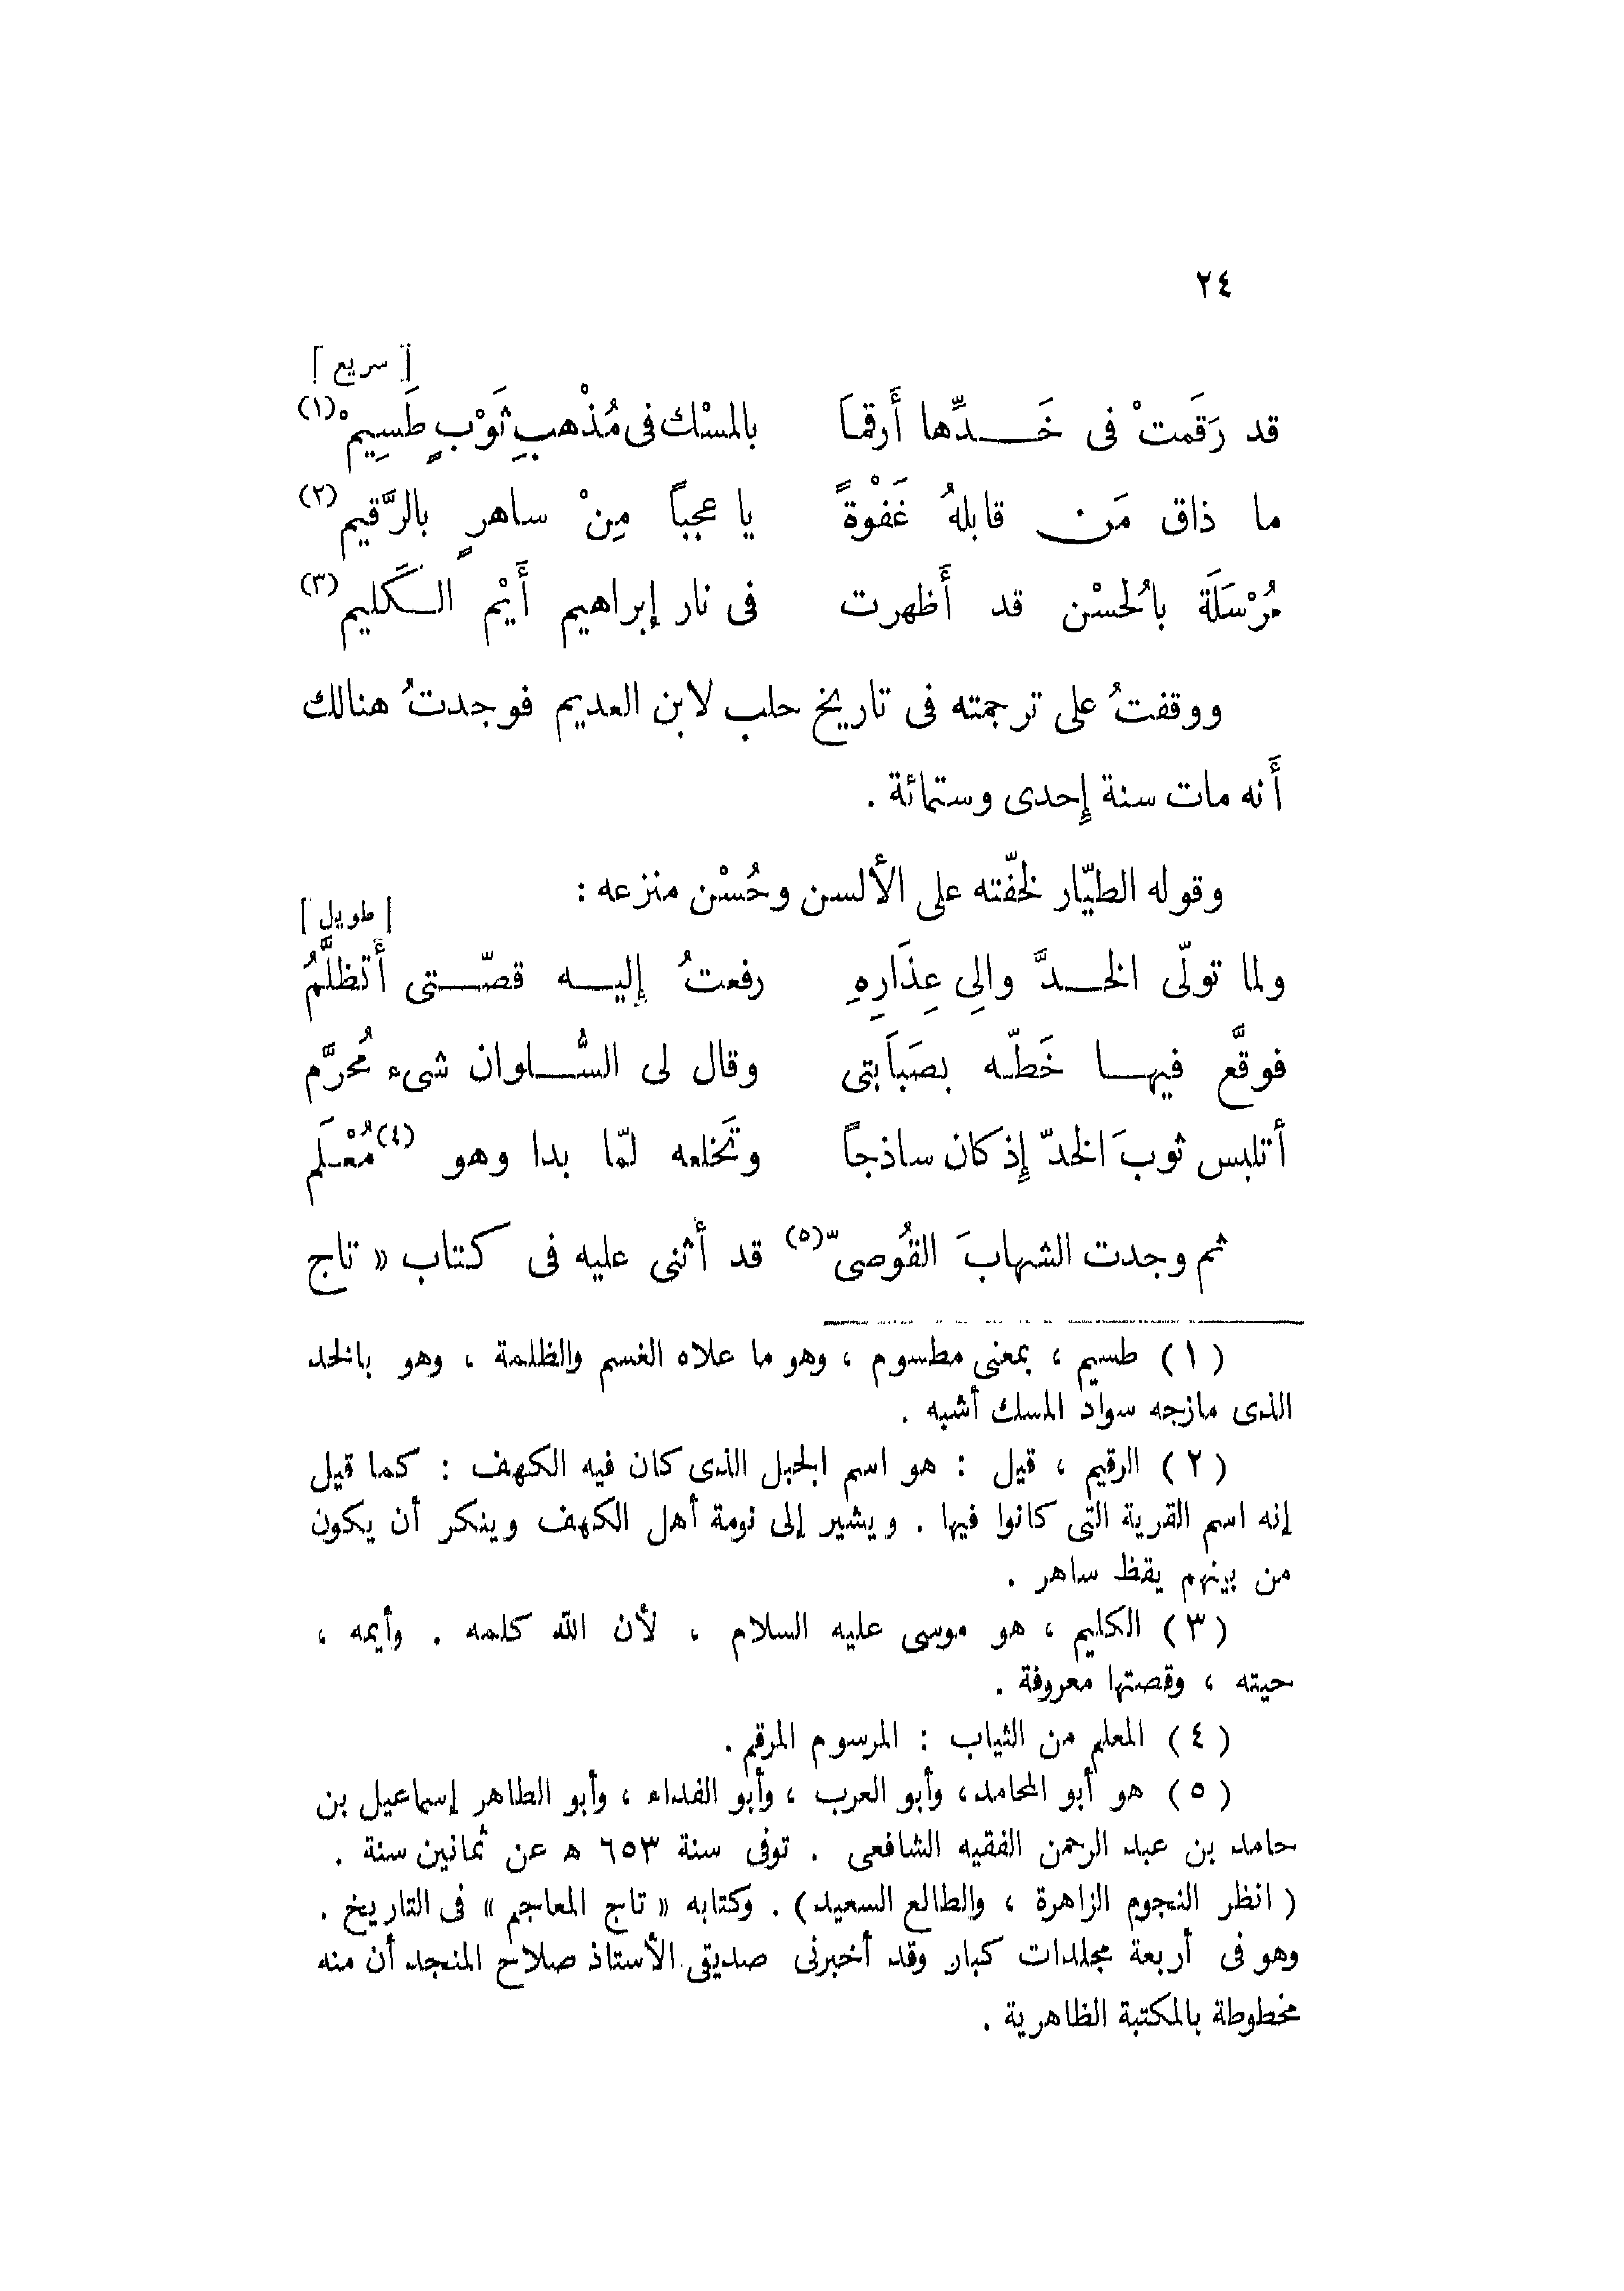 ٢٤
[ سريع ]
قد رَقَمتْ فى خَـــدِّها أَرقمَا بالمسْك فى مُذْهبِ ثَوْبٍ طَسِيمْ(١)
ما ذاق مَن قابلهُ غَفْوةً يا عجباً مِنْ ساهرٍ بالرَّقيم(٢)
مُرْسَلَة بالُحسْن قد أَظهرت فى نار إبراهيم أَيْم الـكَليم(٣)
ووقفتُ على ترجمته فى تاريخ حلب لابن العديم فوجدتُ هنالك
أَنه مات سنة إِحدى وستمائة .
وقوله الطيّار لخفّته على الألسن وحُسْن منزعه :
[ طويل ]
ولما تولّى الخــدَّ والِى عِذَارِهِ رفعتُ إليــه قصّــتى أَتظلَّمُ
فوقَّع فيهــا خَطّـه بصَبَابتى وقال لى السُّــلوان شىء مُحرَّم
أتلبس ثوبَ الخدّ إِذ كان ساذجاً وتَخلعه لمّا بدا وهو (٤)مُعْـلَم
ثم وجدت الشهابَ القُوصىّ(٥) قد أثنى عليه فى كتاب « تاج
( ١ ) طسيم ، بمعنى مطسوم ، وهو ما علاه الغسم والظلمة ، وهو بالخد
الذى مازجه سواد المسك أشبه .
( ٢ ) الرقيم ، قيل : هو اسم الجبل الذى كان فيه الكهف : كما قيل
إنه اسم القرية التى كانوا فيها . ويشير إلى نومة أهل الكهف وينكر أن يكون
من بينهم يقظ ساهر .
( ٣ ) الكليم ، هو موسى عليه السلام ، لأن الله كلمه . وأيمه ،
حيته ، وقصتها معروفة .
( ٤ ) المعلم من الثياب : المرسوم المرقم .
( ٥ ) هو أبو المحامد، وأبو العرب ، وأبو الفداء ، وأبو الطاهر إسماعيل بن
حامد بن عبد الرحمن الفقيه الشافعى . توفى سنة ٦٥٣ ه عن ثمانين سنة .
( انظر النجوم الزاهرة ، والطالع السعيد) . وكتابه « تاج المعاجم » فى التاريخ .
وهو فى أربعة مجلدات كبار وقد أخبرنى صديقى الأستاذ صلاح المنجد أن منه
مخطوطة بالمكتبة الظاهرية .